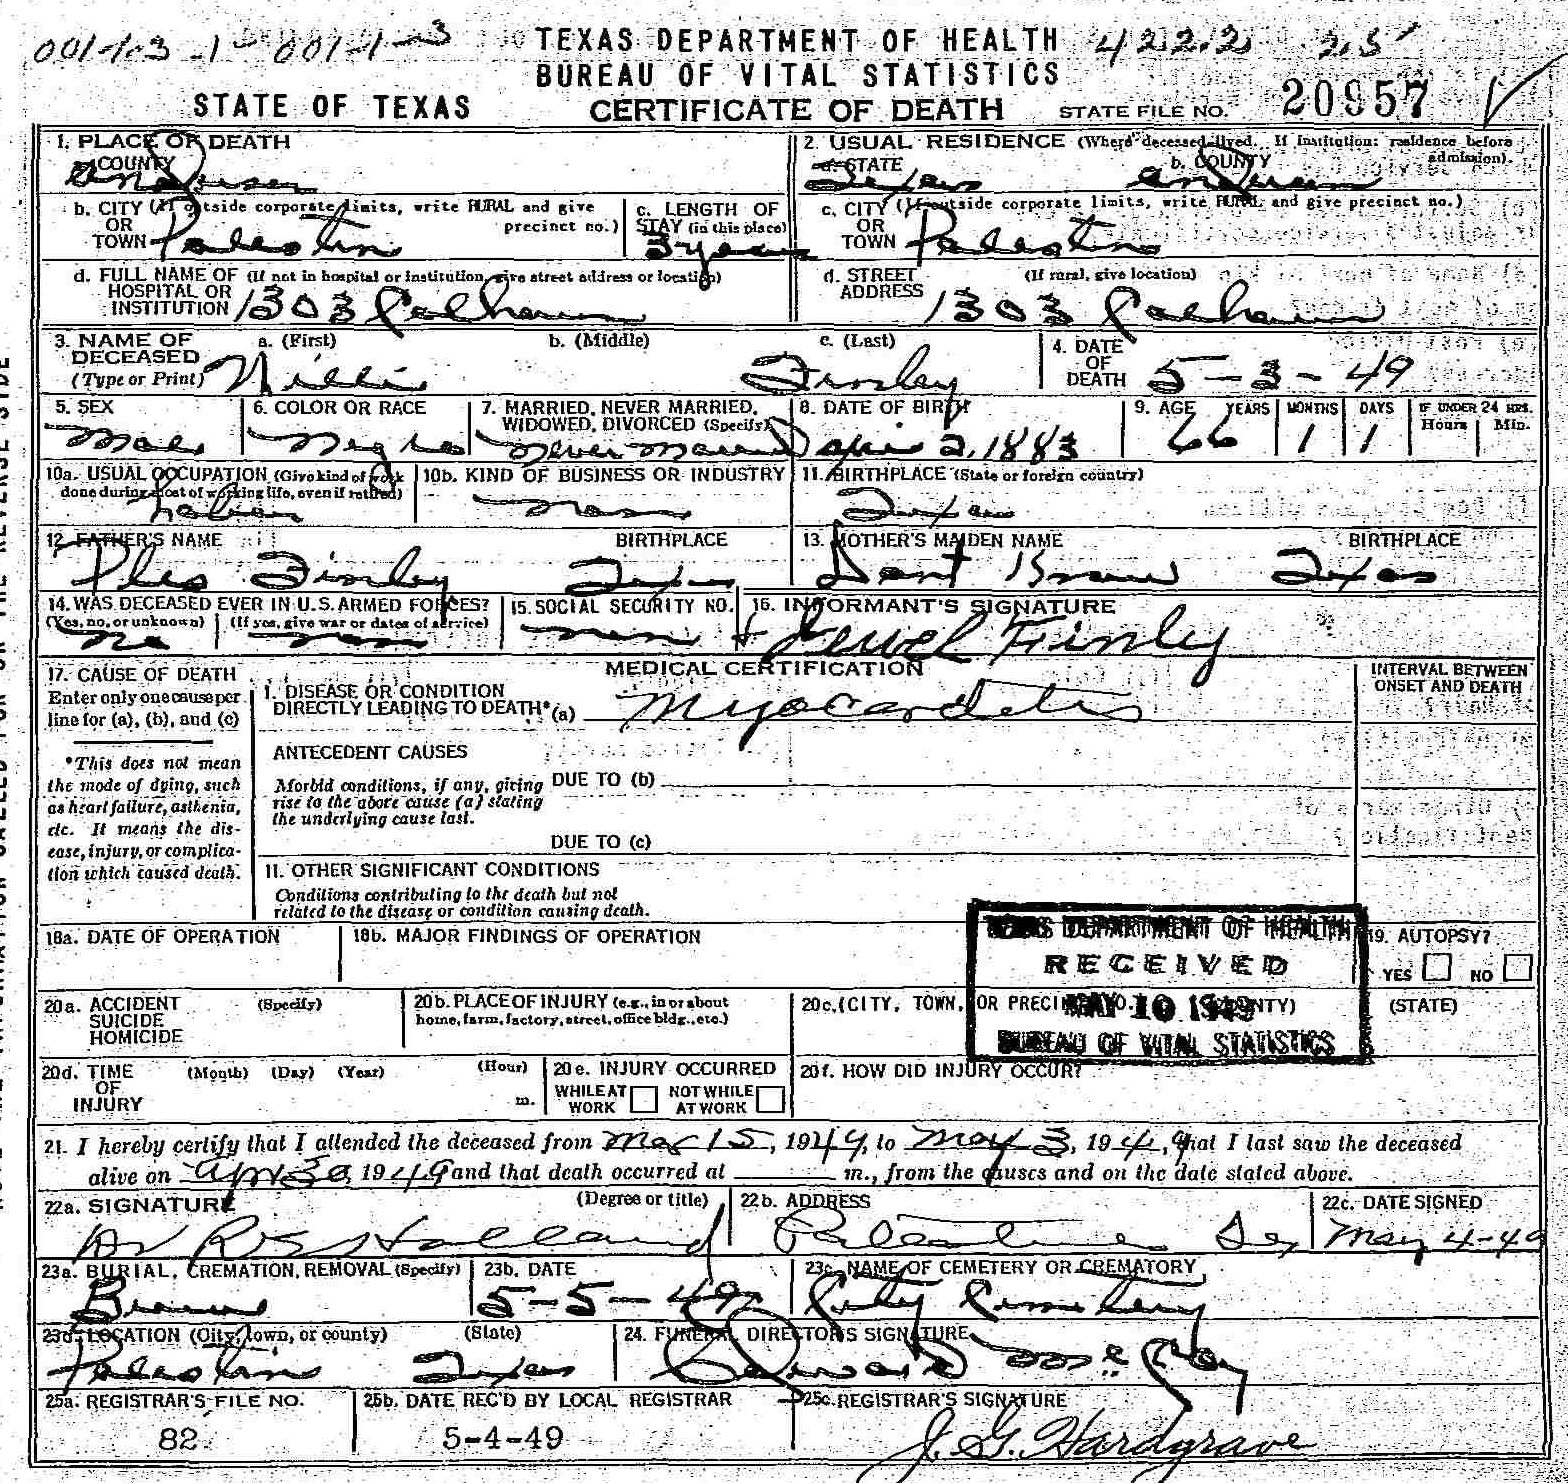 001-103-1 001-1-3 TEXAS DEPARTMENT OF HEALTH 422.2 25
BUREAU OF VITAL STATISTICS
STATE OF TEXAS CERTIFICATE OF DEATH STATE FILE NO. 20957
1. PLACE OF DEATH 2. USUAL RESIDENCE (Where deceased lived. If Institution: residence before admission).
a. COUNTY Anderson a. STATE Texas b. COUNTY Anderson
b. CITY (If outside corporate limits, write RURAL and give precinct no.) OR TOWN Palestin c. LENGTH OF STAY (in this place) 3 years c. CITY (If outside corporate limits, write RURAL and give precinct no.) OR TOWN Palestin
d. FULL NAME OF (If not in hospital or institution, give street address or location) HOSPITAL OR INSTITUTION 1303 Calhoun d. STREET ADDRESS (If rural, give location) 1303 Calhoun
3. NAME OF DECEASED (Type or Print) a. (First) Willie b. (Middle) c. (Last) Finley 4. DATE OF DEATH 5-3-49
5. SEX Male 6. COLOR OR RACE Negro 7. MARRIED, NEVER MARRIED, WIDOWED, DIVORCED (Specify) Never Married 8. DATE OF BIRTH April 2, 1883 9. AGE YEARS 66 MONTHS 1 DAYS 1 IF UNDER 24 HRS. Hours Min.
10a. USUAL OCCUPATION (Give kind of work done during most of working life, even if retired) Labor 10b. KIND OF BUSINESS OR INDUSTRY None 11. BIRTHPLACE (State or foreign country) Texas
12. FATHER'S NAME Ples Finley BIRTHPLACE Texas 13. MOTHER'S MAIDEN NAME Dont Know BIRTHPLACE Texas
14. WAS DECEASED EVER IN U.S. ARMED FORCES? (Yes, no, or unknown) No (If yes, give war or dates of service) non 15. SOCIAL SECURITY NO. non 16. INFORMANT'S SIGNATURE Jewel Finly
17. CAUSE OF DEATH MEDICAL CERTIFICATION INTERVAL BETWEEN ONSET AND DEATH
Enter only one cause per line for (a), (b), and (c)
I. DISEASE OR CONDITION DIRECTLY LEADING TO DEATH* (a) Myocardetis
*This does not mean the mode of dying, such as heart failure, asthenia, etc. It means the disease, injury, or complication which caused death.
ANTECEDENT CAUSES
Morbid conditions, if any, giving rise to the above cause (a) stating the underlying cause last. DUE TO (b)
DUE TO (c)
II. OTHER SIGNIFICANT CONDITIONS
Conditions contributing to the death but not related to the disease or condition causing death.
TEXAS DEPARTMENT OF HEALTH
RECEIVED
MAY 10 1949
BUREAU OF VITAL STATISTICS
18a. DATE OF OPERATION 18b. MAJOR FINDINGS OF OPERATION 19. AUTOPSY? YES NO
20a. ACCIDENT SUICIDE HOMICIDE (Specify) 20b. PLACE OF INJURY (e.g., in or about home, farm, factory, street, office bldg., etc.) 20c. (CITY, TOWN, OR PRECINCT NO.) (COUNTY) (STATE)
20d. TIME OF INJURY (Month) (Day) (Year) (Hour) m. 20e. INJURY OCCURRED WHILE AT WORK NOT WHILE AT WORK 20f. HOW DID INJURY OCCUR?
21. I hereby certify that I attended the deceased from Mar 15, 1949, to May 3, 1949, that I last saw the deceased
alive on Apr 30, 1949 and that death occurred at m., from the causes and on the date stated above.
22a. SIGNATURE (Degree or title) 22b. ADDRESS 22c. DATE SIGNED
Dr Holland Palestine Tex May 4-49
23a. BURIAL, CREMATION, REMOVAL (Specify) 23b. DATE 5-5-49 23c. NAME OF CEMETERY OR CREMATORY City Cemetery
23d. LOCATION (City, town, or county) Palestin (State) Texas 24. FUNERAL DIRECTOR'S SIGNATURE Edward
25a. REGISTRAR'S FILE NO. 82 25b. DATE REC'D BY LOCAL REGISTRAR 5-4-49 25c. REGISTRAR'S SIGNATURE J. G. Hardgrave